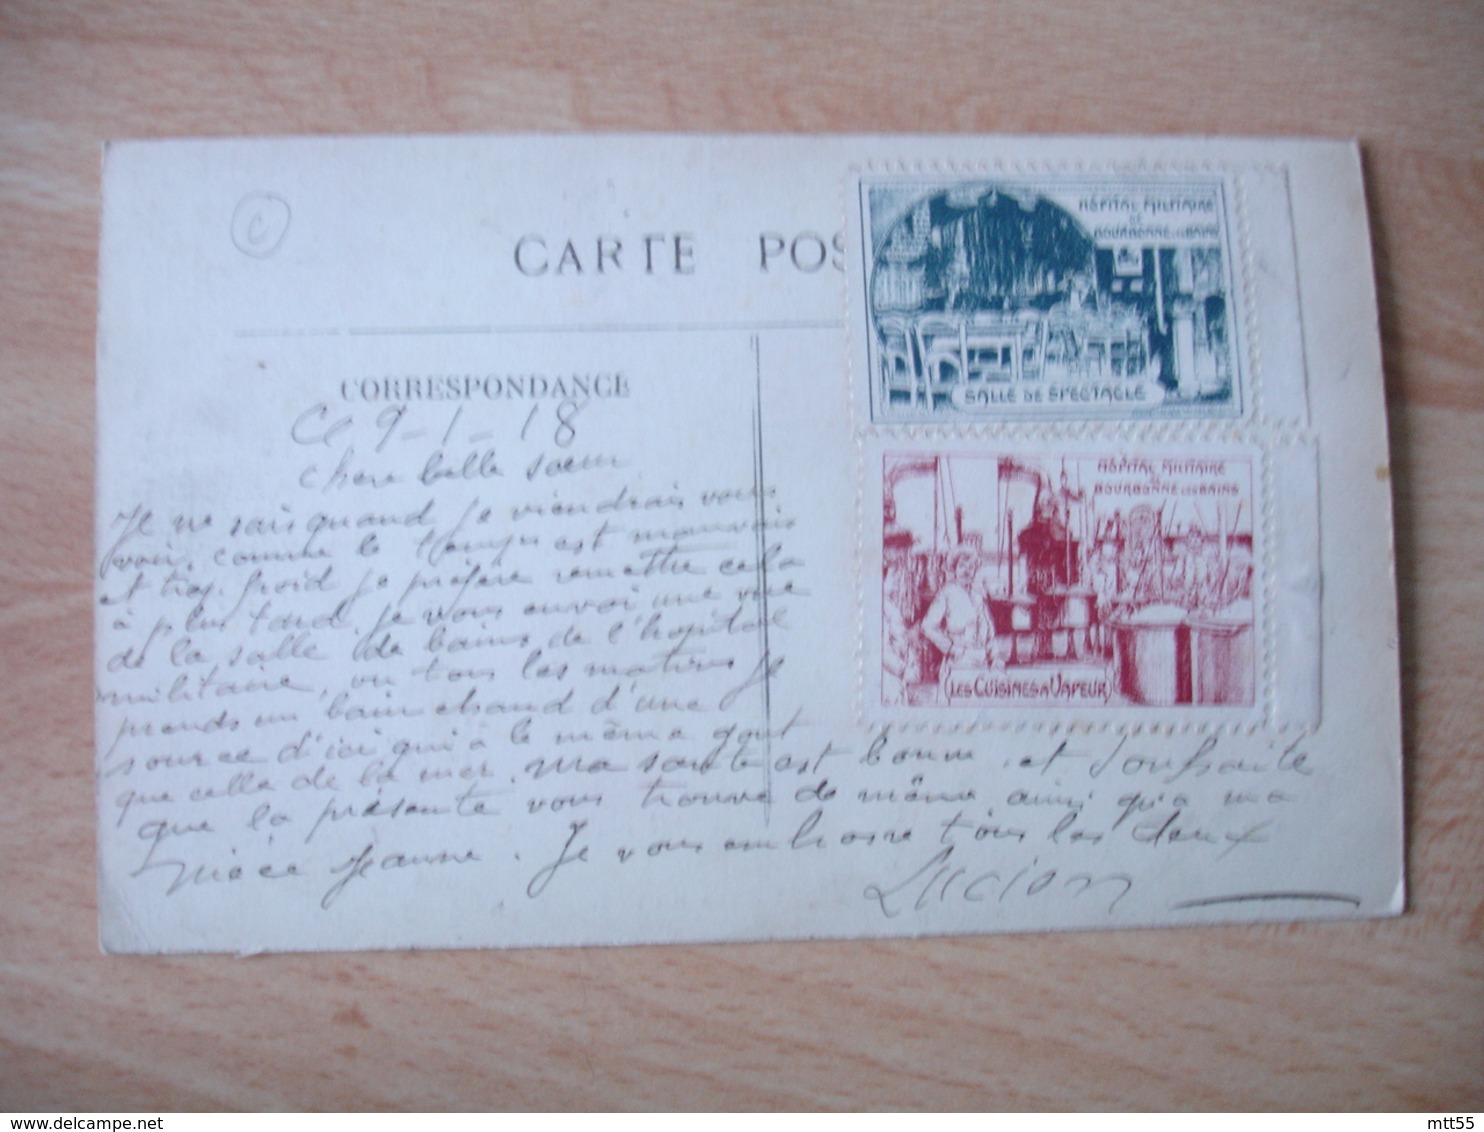 C
CARTE POS
CORRESPONDANCE
Ce 9-1-18
Chere belle soeur
Je ne sais quand je viendrais vous
voir, comme le temps est mauvais
et trop froid je préfère remettre cela
à plus tard. je vous envoi une vue
de la salle de bains de l'hopital
militaire, ou tous les matins je
prends un bain chaud d'une
source d'ici qui a le même gout
que celle de la mer. Ma sante est bonne et souhaite
que la présente vous trouve de même, ainsi qu'a ma
nièce Jeanne. Je vous embrasse tous les deux
Lucien
HÔPITAL MILITAIRE
DE
BOURBONNE LES BAINS
SALLE DE SPECTACLE
HÔPITAL MILITAIRE
DE
BOURBONNE LES BAINS
LES CUISINES A VAPEUR
mtt55